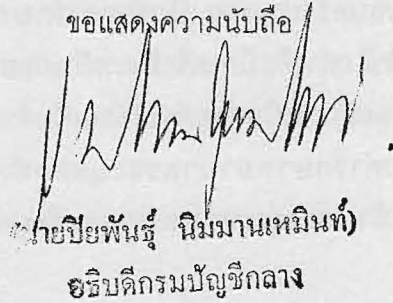 ขอแสดงความนับถือ
(นายปิยพันธุ์ นิมมานเหมินท์)
อธิบดีกรมบัญชีกลาง